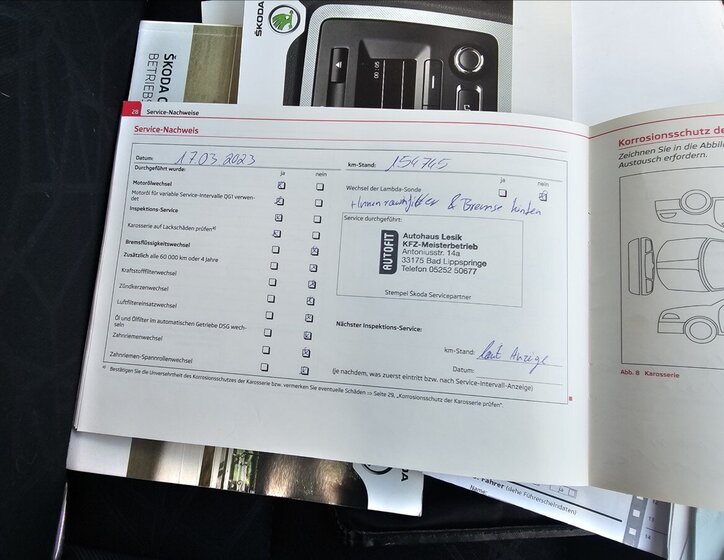 ŠKODA
ŠKODA
00:05
28 Service-Nachweise
Service-Nachweis
Datum: 17.03.2023
Durchgeführt wurde:
ja nein
Motorölwechsel
Motoröl für variable Service-Intervalle QG1 verwen-
det
Inspektions-Service
Karosserie auf Lackschäden prüfen a)
Bremsflüssigkeitswechsel
Zusätzlich alle 60 000 km oder 4 Jahre
Kraftstofffilterwechsel
Zündkerzenwechsel
Luftfiltereinsatzwechsel
Öl und Ölfilter im automatischen Getriebe DSG wech-
seln
Zahnriemenwechsel
Zahnriemen-Spannrollenwechsel
km-Stand: 154745
ja nein
Wechsel der Lambda-Sonde
+ Innenraumfilter & Bremse hinten
Service durchgeführt:
AUTOFIT
Autohaus Lesik
KFZ-Meisterbetrieb
Antoniusstr. 14a
33175 Bad Lippspringe
Telefon 05252 50677
Stempel Škoda Servicepartner
Nächster Inspektions-Service:
km-Stand: laut Anzeige
Datum:
(je nachdem, was zuerst eintritt bzw. nach Service-Intervall-Anzeige)
a) Bestätigen Sie die Unversehrtheit des Korrosionsschutzes der Karosserie bzw. vermerken Sie eventuelle Schäden ⇒ Seite 29, „Korrosionsschutz der Karosserie prüfen".
Korrosionsschutz de
Zeichnen Sie in die Abbil
Austausch erfordern.
Abb. 8 Karosserie
Fahrer (siehe Führerscheindaten)
Name: